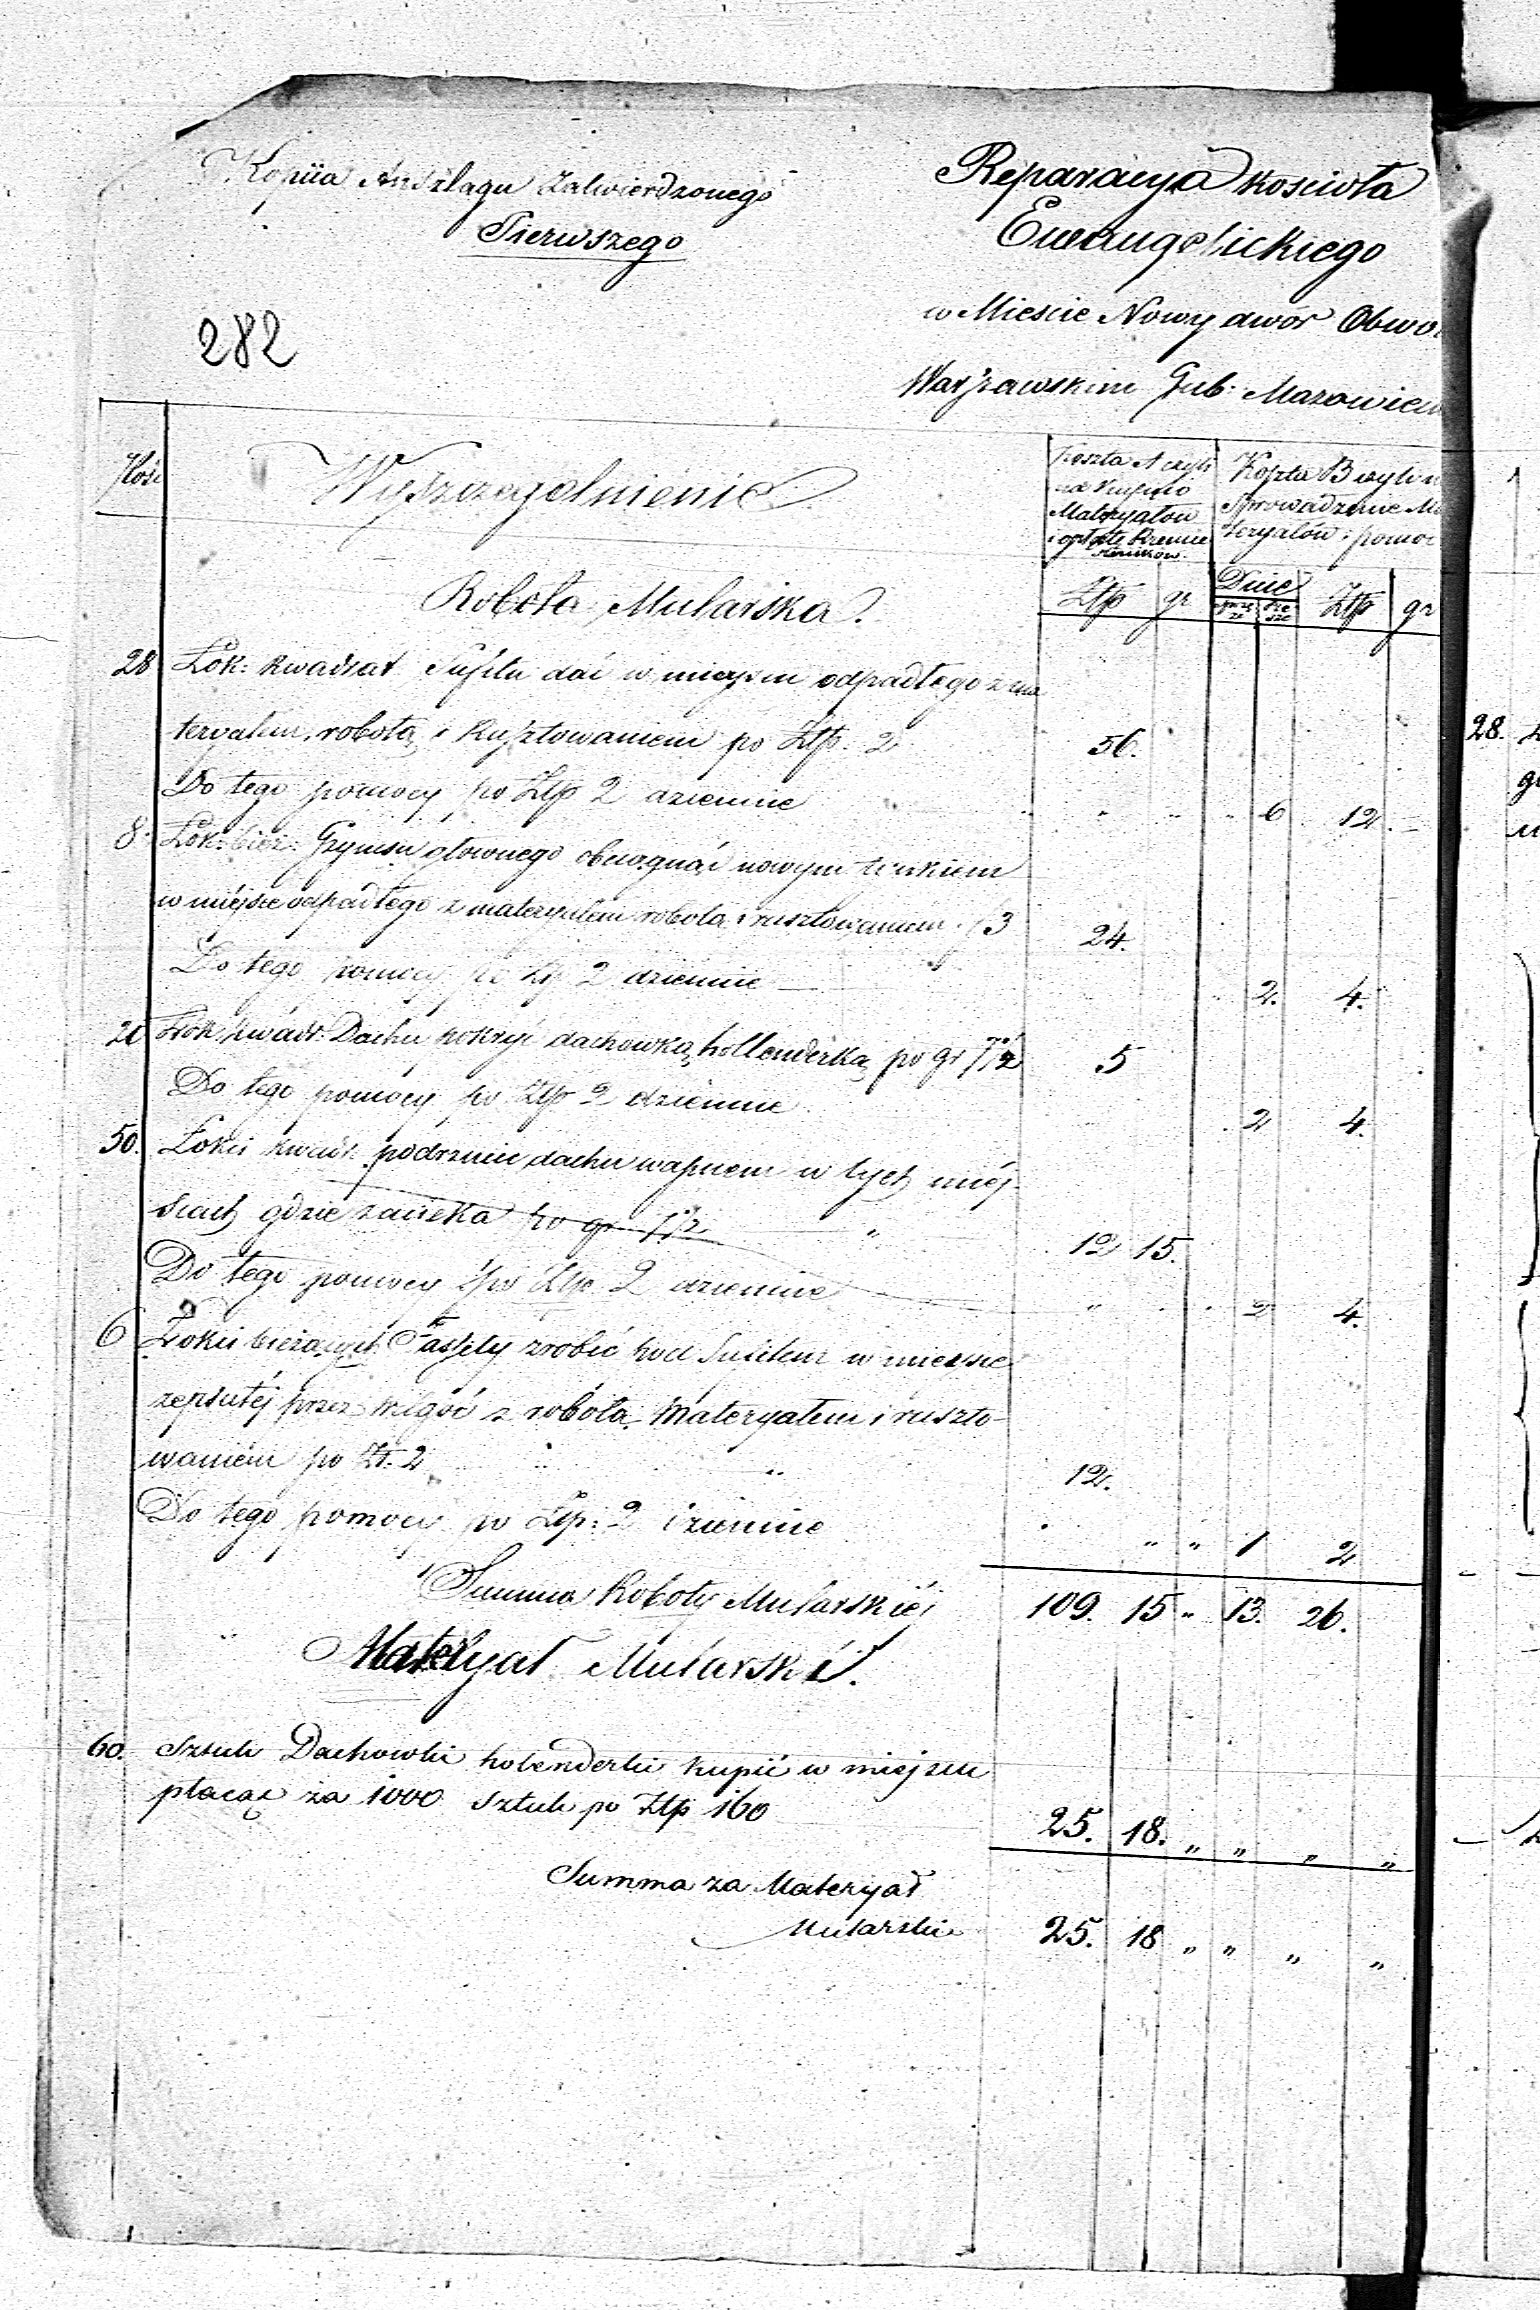 Kopiia Anszlagu Zatwierdzonego
Pierwszego
282
Reparacya kosciola
Ewangelickiego
w Miescie Nowy dwór Obwo
Warszawskim Gub. Mazowiec
Ilość
Wyszczegolnienie
Koszta A czyli
na Kupno
Materyałow
i opłatę Rzemie
slników.
Koszta B czyli n
Sprowadzenie Ma
teryalów i pomoc
Ztp gr Dnie Ztp gr
Robota Mularska.
28 Łok: kwadrat Sufitu dać w miejscu odpadłego z ma
teryałem, robotą i Rusztowaniem po Ztp. 2 56.
Do tego pomocy po Ztp 2 dziennie " " " 6 12. –
8. Łok: bież: Gzymsu głownego obciągnąć nowym tynkiem
w miéjsce odpadłego z materyałem robotą i rusztowaniem 3 24.
Do tego pomocy po Ztp 2 dziennie 2. 4.
20 Łok kwadr: Dachu pokryć dachowką hollenderką po gr 7½ 5
Do tego pomocy po Ztp 2 dziennie 2 4.
50. Łokci kwadr: podrzucić dachu wapnem w tych miéj-
scach gdzie zacieka po gr 7½ " 12 15.
Do tego pomocy po Ztp 2 dziennie " 2 4.
6 Łokci bieżących Fassety zrobić pod Sufitem w miejsce
zepsutéj przez wilgoć z robotą Materyałem i ruszto-
waniem po Zł. 2 " 12.
Do tego pomocy po Ztp: 2 dziennie " " 1 2
Summa Roboty Mularskiéj 109. 15 " 13. 26.
Materyał Mularski.
60. Sztuk Dachowki holenderki kupić w miejscu
płacąc za 1000 sztuk po Ztp 160 25. 18. " " " "
Summa za Materyał
Mularski 25. 18 " " " "
28.